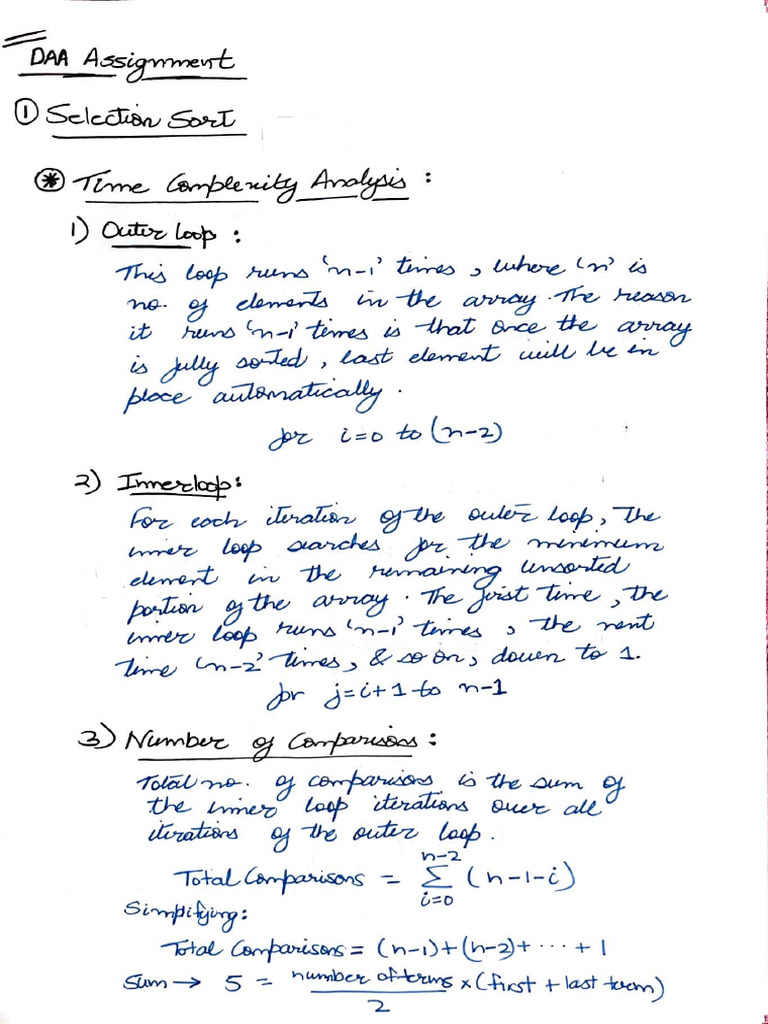 DAA Assignment
① Selection Sort
⊛ Time Complexity Analysis :
1) Outer loop :
This loop runs 'n-1' times, where 'n' is
no. of elements in the array. The reason
it runs 'n-1' times is that once the array
is fully sorted, last element will be in
place automatically.
for i=0 to (n-2)
2) Inner loop:
For each iteration of the outer loop, the
inner loop searches for the minimum
element in the remaining unsorted
portion of the array. The first time, the
inner loop runs 'n-1' times, the next
time 'n-2' times, & so on, down to 1.
for j=i+1 to n-1
3) Number of Comparisons:
Total no. of comparisons is the sum of
the inner loop iterations over all
iterations of the outer loop.
Total Comparisons = n-2 Σ i=0 (n-1-i)
Simplifying:
Total Comparisons = (n-1)+(n-2)+ ··· + 1
Sum → S = number of terms × (first + last term)
2